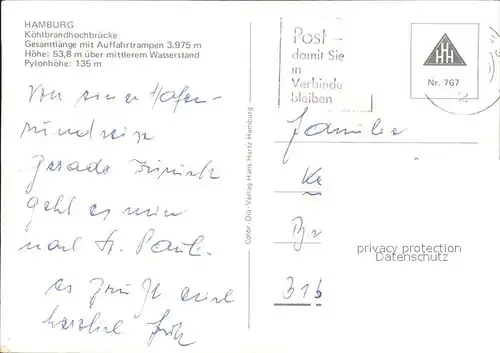 HAMBURG
Köhlbrandhochbrücke
Gesamtlänge mit Auffahrtrampen 3.975 m
Höhe: 53,8 m über mittlerem Wasserstand
Pylonhöhe: 135 m
Post –
damit Sie
in
Verbindu
bleiben
HHH
Nr. 767
Color-Dia-Verlag Hans Hartz Hamburg
Von einer Hafen-
rundreise
gerade zurück
geht es nun
nach St. Pauli.
es grüßt euch
herzlich
Familie
Ke
Br
31
privacy protection
Datenschutz